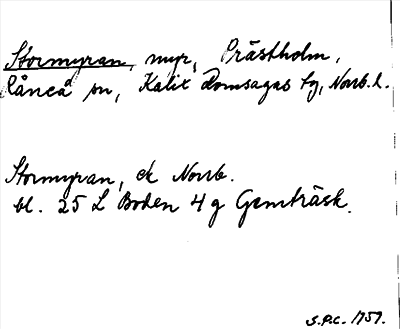 Stormyran, myr, Prästholm,
Råneå sn, Kalix domsagas tg, Norrb. l.
Stormyran, ek Norrb.
bl. 25 L Boden 4 g Gemträsk.
S.P.C. 1757.